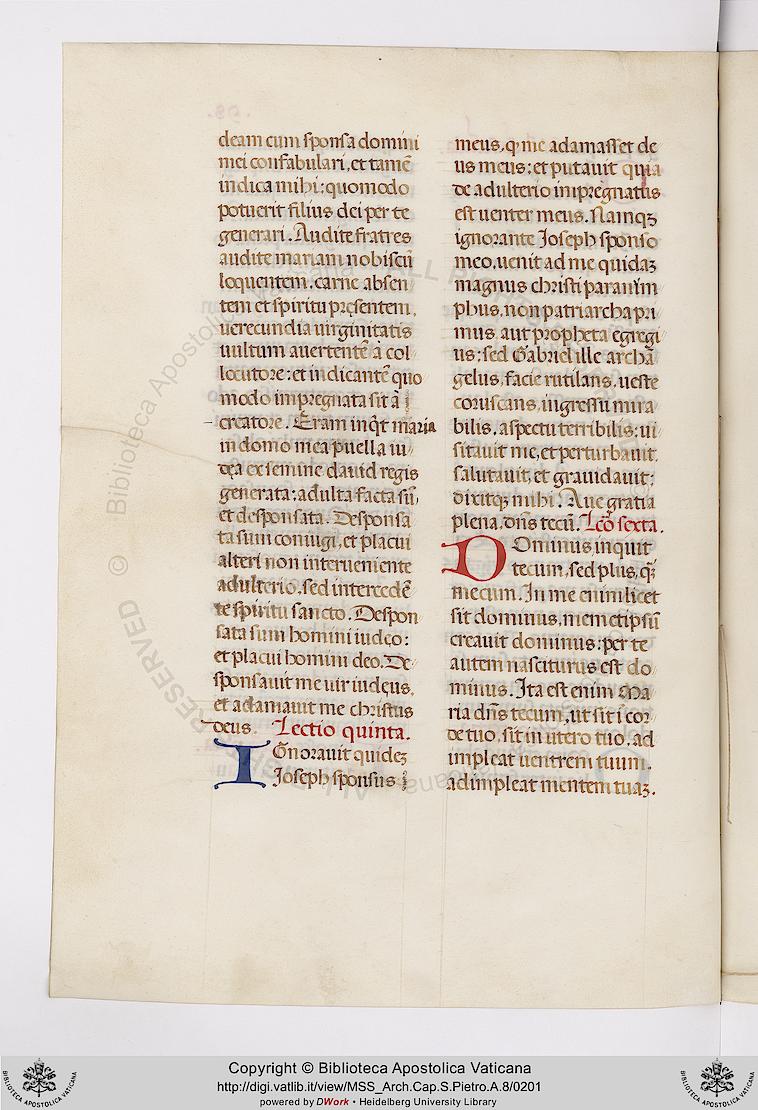 deam cum sponsa domini
mei confabulari, et tamē
indica mihi: quomodo
potuerit filius dei per te
generari. Audite fratres
audite mariam nobiscū
loquentem. carne absen
tem et spiritu pręsentem,
uerecundia uirginitatis
uultum auertentē à col
locutore: et indicantē quo
modo impregnata sit à
creatore. Eram inq̇t maria
in domo mea puella iu
dęa ex semine dauid regis
generata: adulta facta sū,
et desponsata. Desponsa
ta sum coniugi, et placui
alteri non interueniente
adulterio. sed intercedē
te spiritu sancto. Despon
sata sum homini iudęo:
et placui homini deo. De
sponsauit me uir iudęus,
et adamauit me christus
deus. Lectio quinta.
IGnorauit quideʒ
Ioseph sponsus
meus, q me adamasset de
us meus: et putauit quia
de adulterio impregnatus
est uenter meus. Namqʒ
ignorante Ioseph sponso
meo, uenit ad me quidaʒ
magnus christi paranim
phus, non patriarcha pri
mus, aut propheta egregi
us: sed Gabriel ille archā
gelus, facie rutilans, ueste
coruscans, ingressu mira
bilis, aspectu terribilis: ui
sitauit me, et perturbauit,
salutauit, et grauidauit:
dixitqʒ mihi. Aue gratia
plena, dn̄s tecū. Leō sexta.
DOminus inquit
tecum, sed plus, q̄
mecum. In me enim licet
sit dominus, memetipsū
creauit dominus: per te
autem nasciturus est do
minus. Ita est enim Ma
ria dn̄s tecum, ut sit i cor
de tuo, sit in utero tuo. ad
impleat uentrem tuum,
adimpleat mentem tuaʒ.
© Biblioteca Apostolica Vaticana ALL RIGHTS RESERVED
Copyright © Biblioteca Apostolica Vaticana
http://digi.vatlib.it/view/MSS_Arch.Cap.S.Pietro.A.8/0201
powered by DWork • Heidelberg University Library
BIBLIOTECA APOSTOLICA VATICANA
BIBLIOTECA APOSTOLICA VATICANA